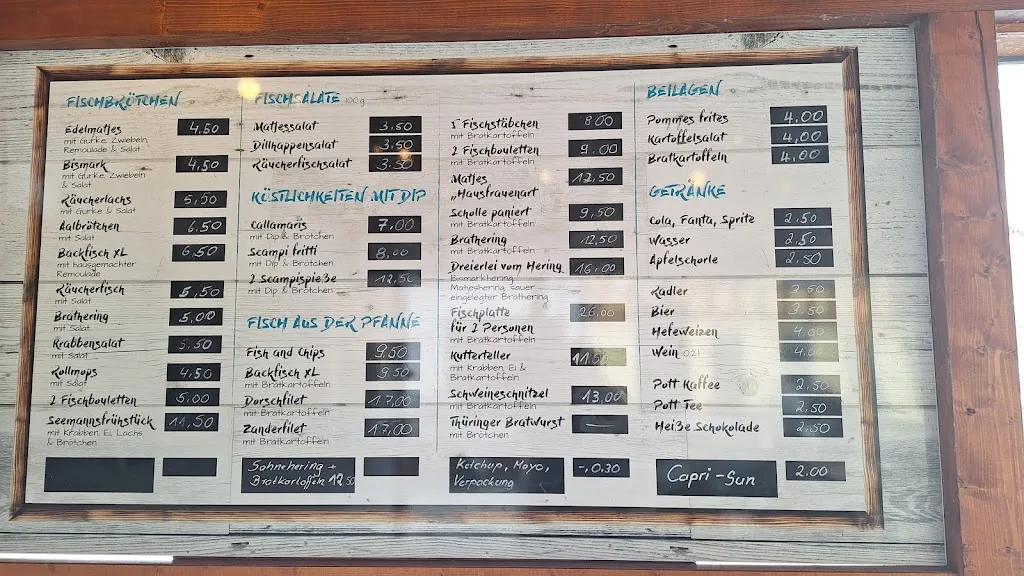 FISCHBRÖTCHEN
Edelmatjes 4,50
mit Gurke, Zwiebeln,
Remoulade & Salat
Bismark 4,50
mit Gurke, Zwiebeln
& Salat
Räucherlachs 5,50
mit Gurke & Salat
Aalbrötchen 6,50
mit Salat
Backfisch XL 6,50
mit hausgemachter
Remoulade
Räucherfisch 5,50
mit Salat
Brathering 5,00
mit Salat
Krabbensalat 5,50
mit Salat
Rollmops 4,50
mit Salat
2 Fischbouletten 5,00
Seemannsfrühstück 11,50
mit Krabben, Ei, Lachs
& Brötchen
FISCHSALATE 100g
Matjessalat 3,50
Dillhappensalat 3,50
Räucherfischsalat 3,50
KÖSTLICHKEITEN MIT DIP
Callamaris 7,00
mit Dip & Brötchen
Scampi fritti 8,00
mit Dip & Brötchen
2 Scampispieße 12,50
mit Dip & Brötchen
FISCH AUS DER PFANNE
Fish and Chips 9,50
Backfisch XL 9,50
mit Bratkartoffeln
Dorschfilet 17,00
mit Bratkartoffeln
Zanderfilet 17,00
mit Bratkartoffeln
Sahnehering +
Bratkartoffeln 12,50
5 Fischstäbchen 8,00
mit Bratkartoffeln
2 Fischbouletten 9,00
mit Bratkartoffeln
Matjes 12,50
„Hausfrauenart
Scholle paniert 9,50
mit Bratkartoffeln
Brathering 12,50
mit Bratkartoffeln
Dreierlei vom Hering 16,00
Bismarkhering,
Matjeshering, sauer
eingelegter Brathering
Fischplatte 26,00
für 2 Personen
Kutterteller 11,00
mit Krabben, Ei &
Bratkartoffeln
Schweineschnitzel 13,00
mit Bratkartoffeln
Thüringer Bratwurst —
mit Brötchen
Ketchup, Mayo, -,0.30
Verpackung
BEILAGEN
Pommes frites 4,00
Kartoffelsalat 4,00
Bratkartoffeln 4,00
GETRÄNKE
Cola, Fanta, Sprite 2,50
Wasser 2,50
Apfelschorle 2,50
Radler 3,50
Bier 3,50
Hefeweizen 4,00
Wein 0,2l 4,00
Pott Kaffee 2,50
Pott Tee 2,50
Heiße Schokolade 2,50
Capri-Sun 2.00